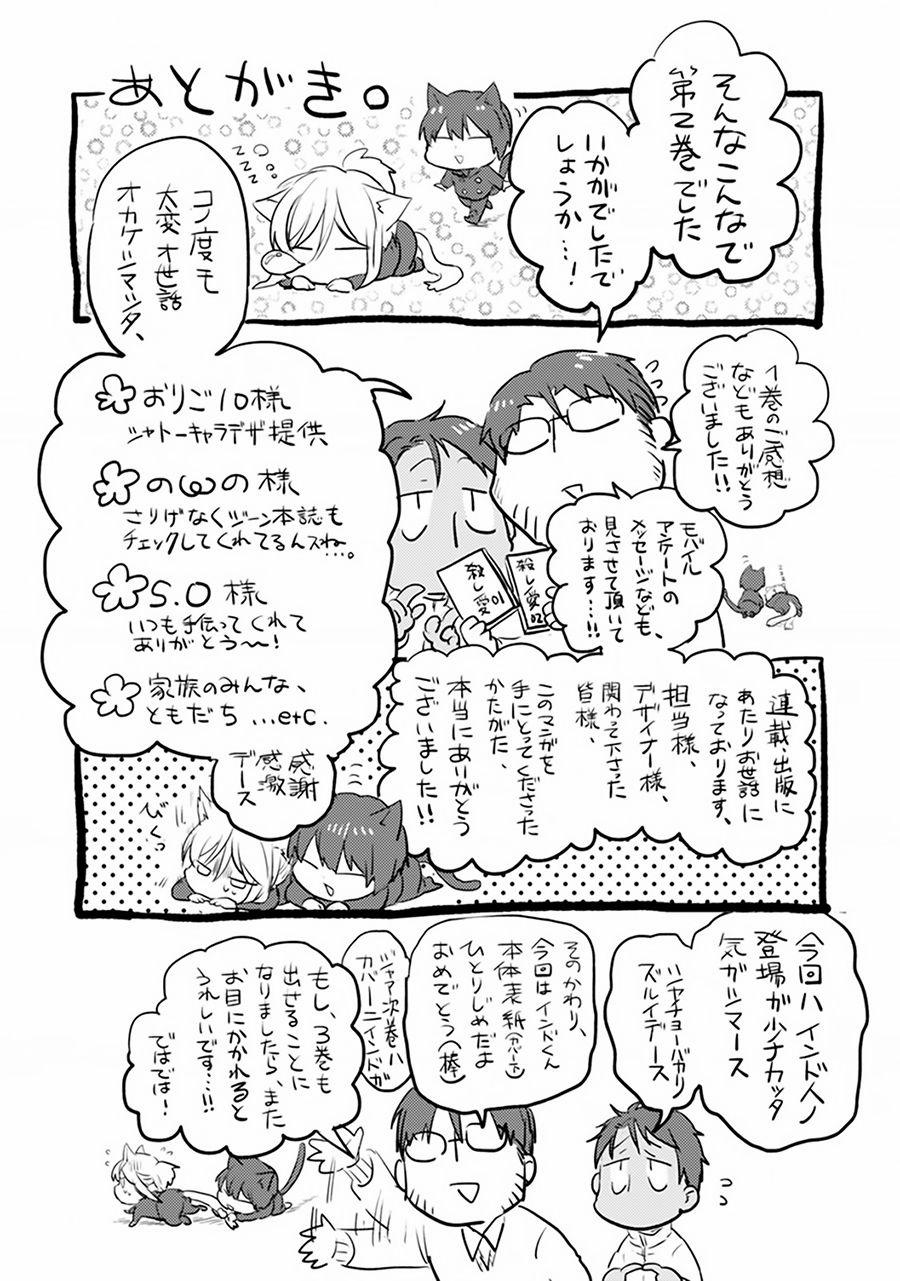 あとがき。
そんなこんなで
第2巻でした
いかがでしたで
しょうか…!
zzz
コノ度モ
大変オ世話
オカケシマシタ、
1巻のご感想
などもありがとう
ございました!!
モバイル
アンケートの
メッセージなども、
見させて頂いて
おります…!!
殺し愛01
殺し愛02
おりご10様
シャトーキャラデザ提供
のωの様
さりげなくジーン本誌も
チェックしてくれてるんスね…。
S.O様
いつも手伝ってくれて
ありがとう〜!
家族のみんな、
ともだち …etc.
連載、出版に
あたりお世話に
なっております、
担当様、
デザイナー様、
関わって下さった
皆様、
このマンガを
手にとってくださった
かたがた、
本当にありがとう
ございました!!
感謝
感激
デース
びくっ
今回ハインド人ノ
登場が少ナカッタ
気がシマース
シャチョーバカリ
ズルイデース
そのかわり、
今回はインドくん
本体表紙(カバー下)
ひとりじめだよ
おめでとう(棒)
ジャア次巻ハ
カバーニインドガ
もし、3巻も
出せることに
なりましたら、また
お目にかかれると
うれしいです…!!
ではでは!